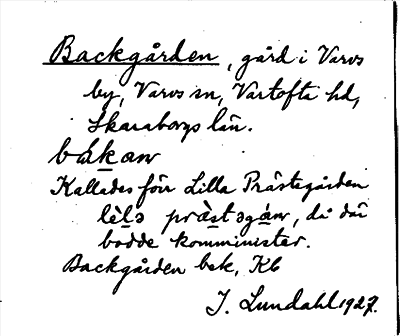 Backgården, gård i Varvs
by, Varvs sn, Vartofta hd,
Skaraborgs län.
bákaɴ
Kallades förr Lilla Prästgården
lèlə pràstəgáɴ, då där
bodde komminister.
Backgården bek, Kb
J. Lundahl 1927.